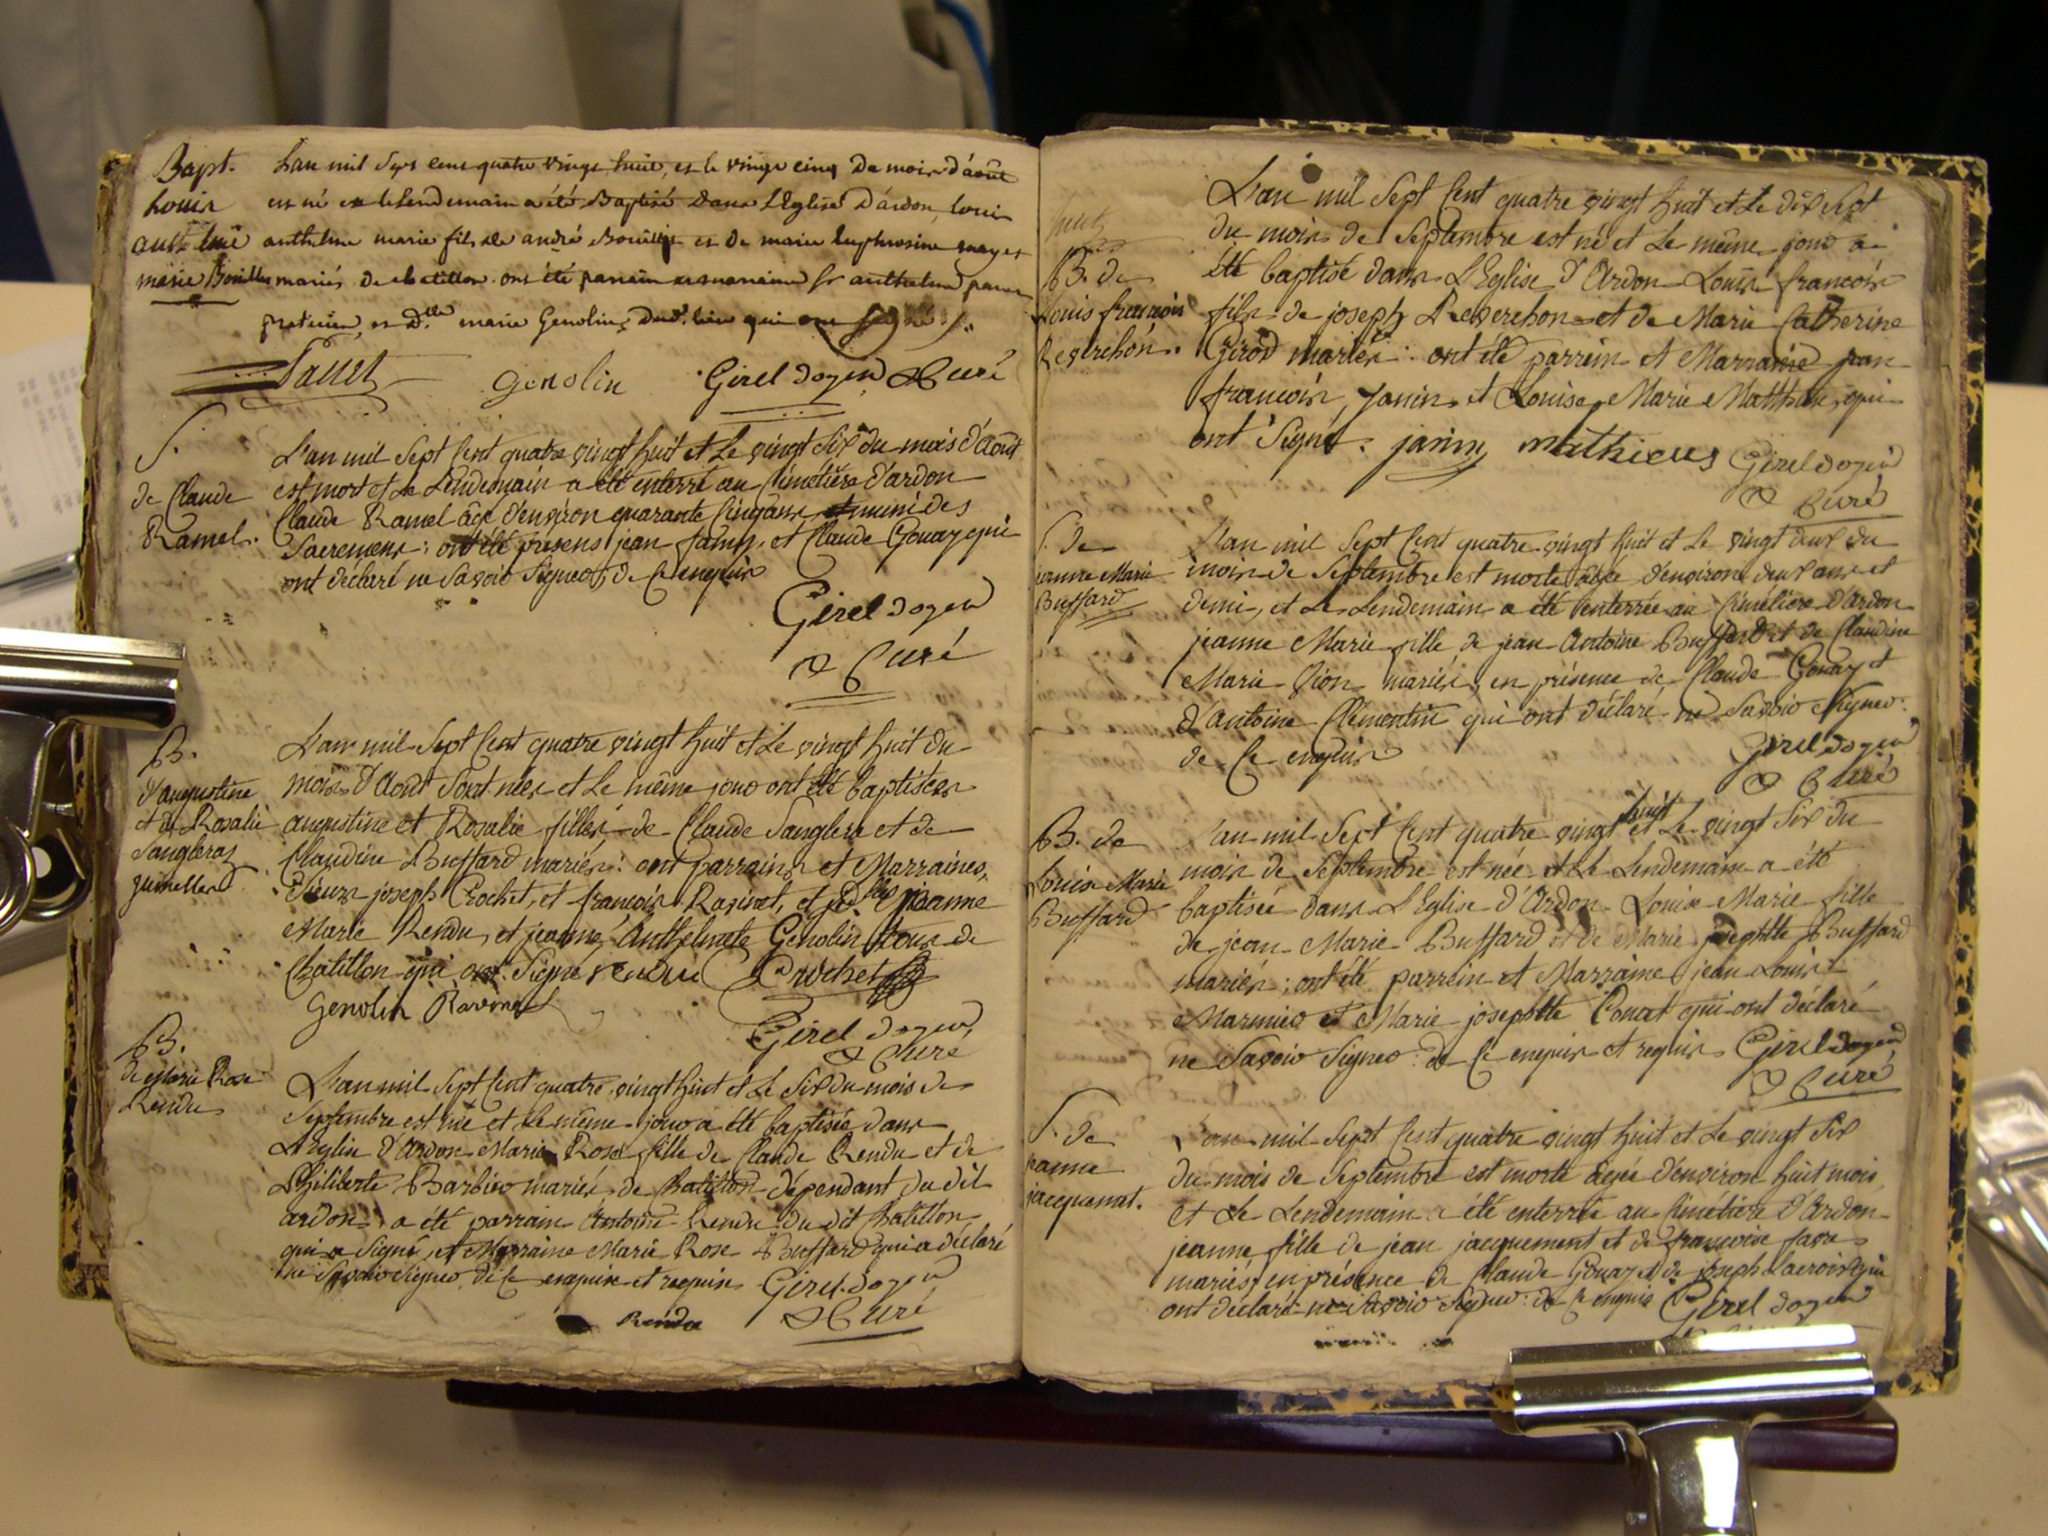 Bapt.
Louis
anthelme
marie Bouillet
Lan mil Sept cent quatre vingt huit, et le vingt cinq De mois d'août
est né et le lendemain a été Baptisé Dans L'Eglise D'ardon, louis
anthelme marie fils de andré Bouillet et De marie Euphrosine
mariés De chatillon. ont été parrain et marraine Sr anthelme
praticien, et Dlle marie Genolin, Dud. lieu qui ont Signé
genolin Girel doyen & Curé
S.
de Claude
Ramel.
L'an mil Sept Cent quatre vingt huit et Le vingt Six du mois d'Aout
est mort et Le Lendemain a été enterré au Cimétière d'ardon
Claude Ramel âgé d'environ quarante Cinq ans, et muni des
Sacremens: ont été présens jean et Claude Gouay qui
ont déclaré ne Savoir Signer, de Ce enquis
Girel doyen
& Curé
B.
d'augustine
et de Rosalie
Sanglera
jumelles
L'an mil Sept Cent quatre vingt huit et Le vingt huit du
mois d'Aout Sont nées et Le même jour ont été baptisées
augustine et Rosalie filles de Claude Sanglera et de
Claudine Buffard mariés: ont parrains et Marraines,
Sieurs joseph Crochet, et françois Ravinet, et jeanne
Marie Rendu, et jeanne Anthelmete Genolin tous de
Chatillon qui ont Signé rendu Crochet
Genolin Ravinet
Girel doyen
& Curé
B.
de Marie Rose
Rendu
L'an mil Sept Cent quatre vingt huit et Le Six du mois de
Septembre est née et Le même jour a été baptisée dans
L'Eglise d'Ardon Marie Rose fille de Claude Rendu et de
Philiberte Barbier mariés de Chatillon dépendant du dit
ardon, a été parrain Antoine Rendu du dit Chatillon
qui a Signé, et Marraine Marie Rose Buffard qui a déclaré
ne Savoir Signer de Ce enquise et requise Girel doyen
Rendu & Curé
B. de
Louis françois
Reverchon.
L'an mil Sept Cent quatre vingt huit et Le dix Sept
du mois de Septembre est né et Le même jour a
été baptisé dans L'Eglise d'Ardon Louis françois
fils de joseph Reverchon et de Marie Catherine
Girod mariés: ont été parrein et Marraine jean
françois Janin, et Louise Marie Matthieu, qui
ont Signé. janin mathieus Girel doyen
& Curé
S. de
jeanne Marie
Buffard
L'an mil Sept Cent quatre vingt huit et Le vingt deux du
mois de Septembre est morte âgée d'environ deux ans et
demi, et Le Lendemain a été enterrée au Cimétière d'Ardon
jeanne Marie fille de jean Antoine Buffard et de Claudine
Marie Vion mariés, en présence de Claude Gouay et
d'Antoine Clémentin qui ont déclaré ne Savoir Signer.
de Ce enquis Girel doyen
& Curé
B. de
Louise Marie
Buffard
L'an mil Sept Cent quatre vingt huit et Le vingt Six du
mois de Septembre est née et Le Lendemain a été
baptisée dans L'Eglise d'Ardon Louise Marie fille
de jean Marie Buffard et de Marie josephtte Buffard
mariés; ont été parrein et Marraine jean Louis
Marmier et Marie josephtte Conat qui ont déclaré
ne Savoir Signer de Ce enquis et requis Girel doyen
& Curé
S. de
jeanne
jacquemet.
L'an mil Sept Cent quatre vingt huit et Le vingt Six
du mois de Septembre est morte âgée d'environ huit mois,
et Le Lendemain a été enterrée au Cimétière d'Ardon
jeanne fille de jean jacquement et de françoise favre
mariés, en présence de Claude Gouay et de joseph Lacroix qui
ont déclaré ne Savoir Signer de Ce enquis Girel doyen